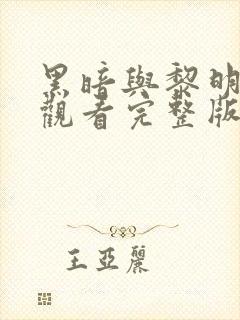 黑暗與黎明
觀看完整版
王亞麗